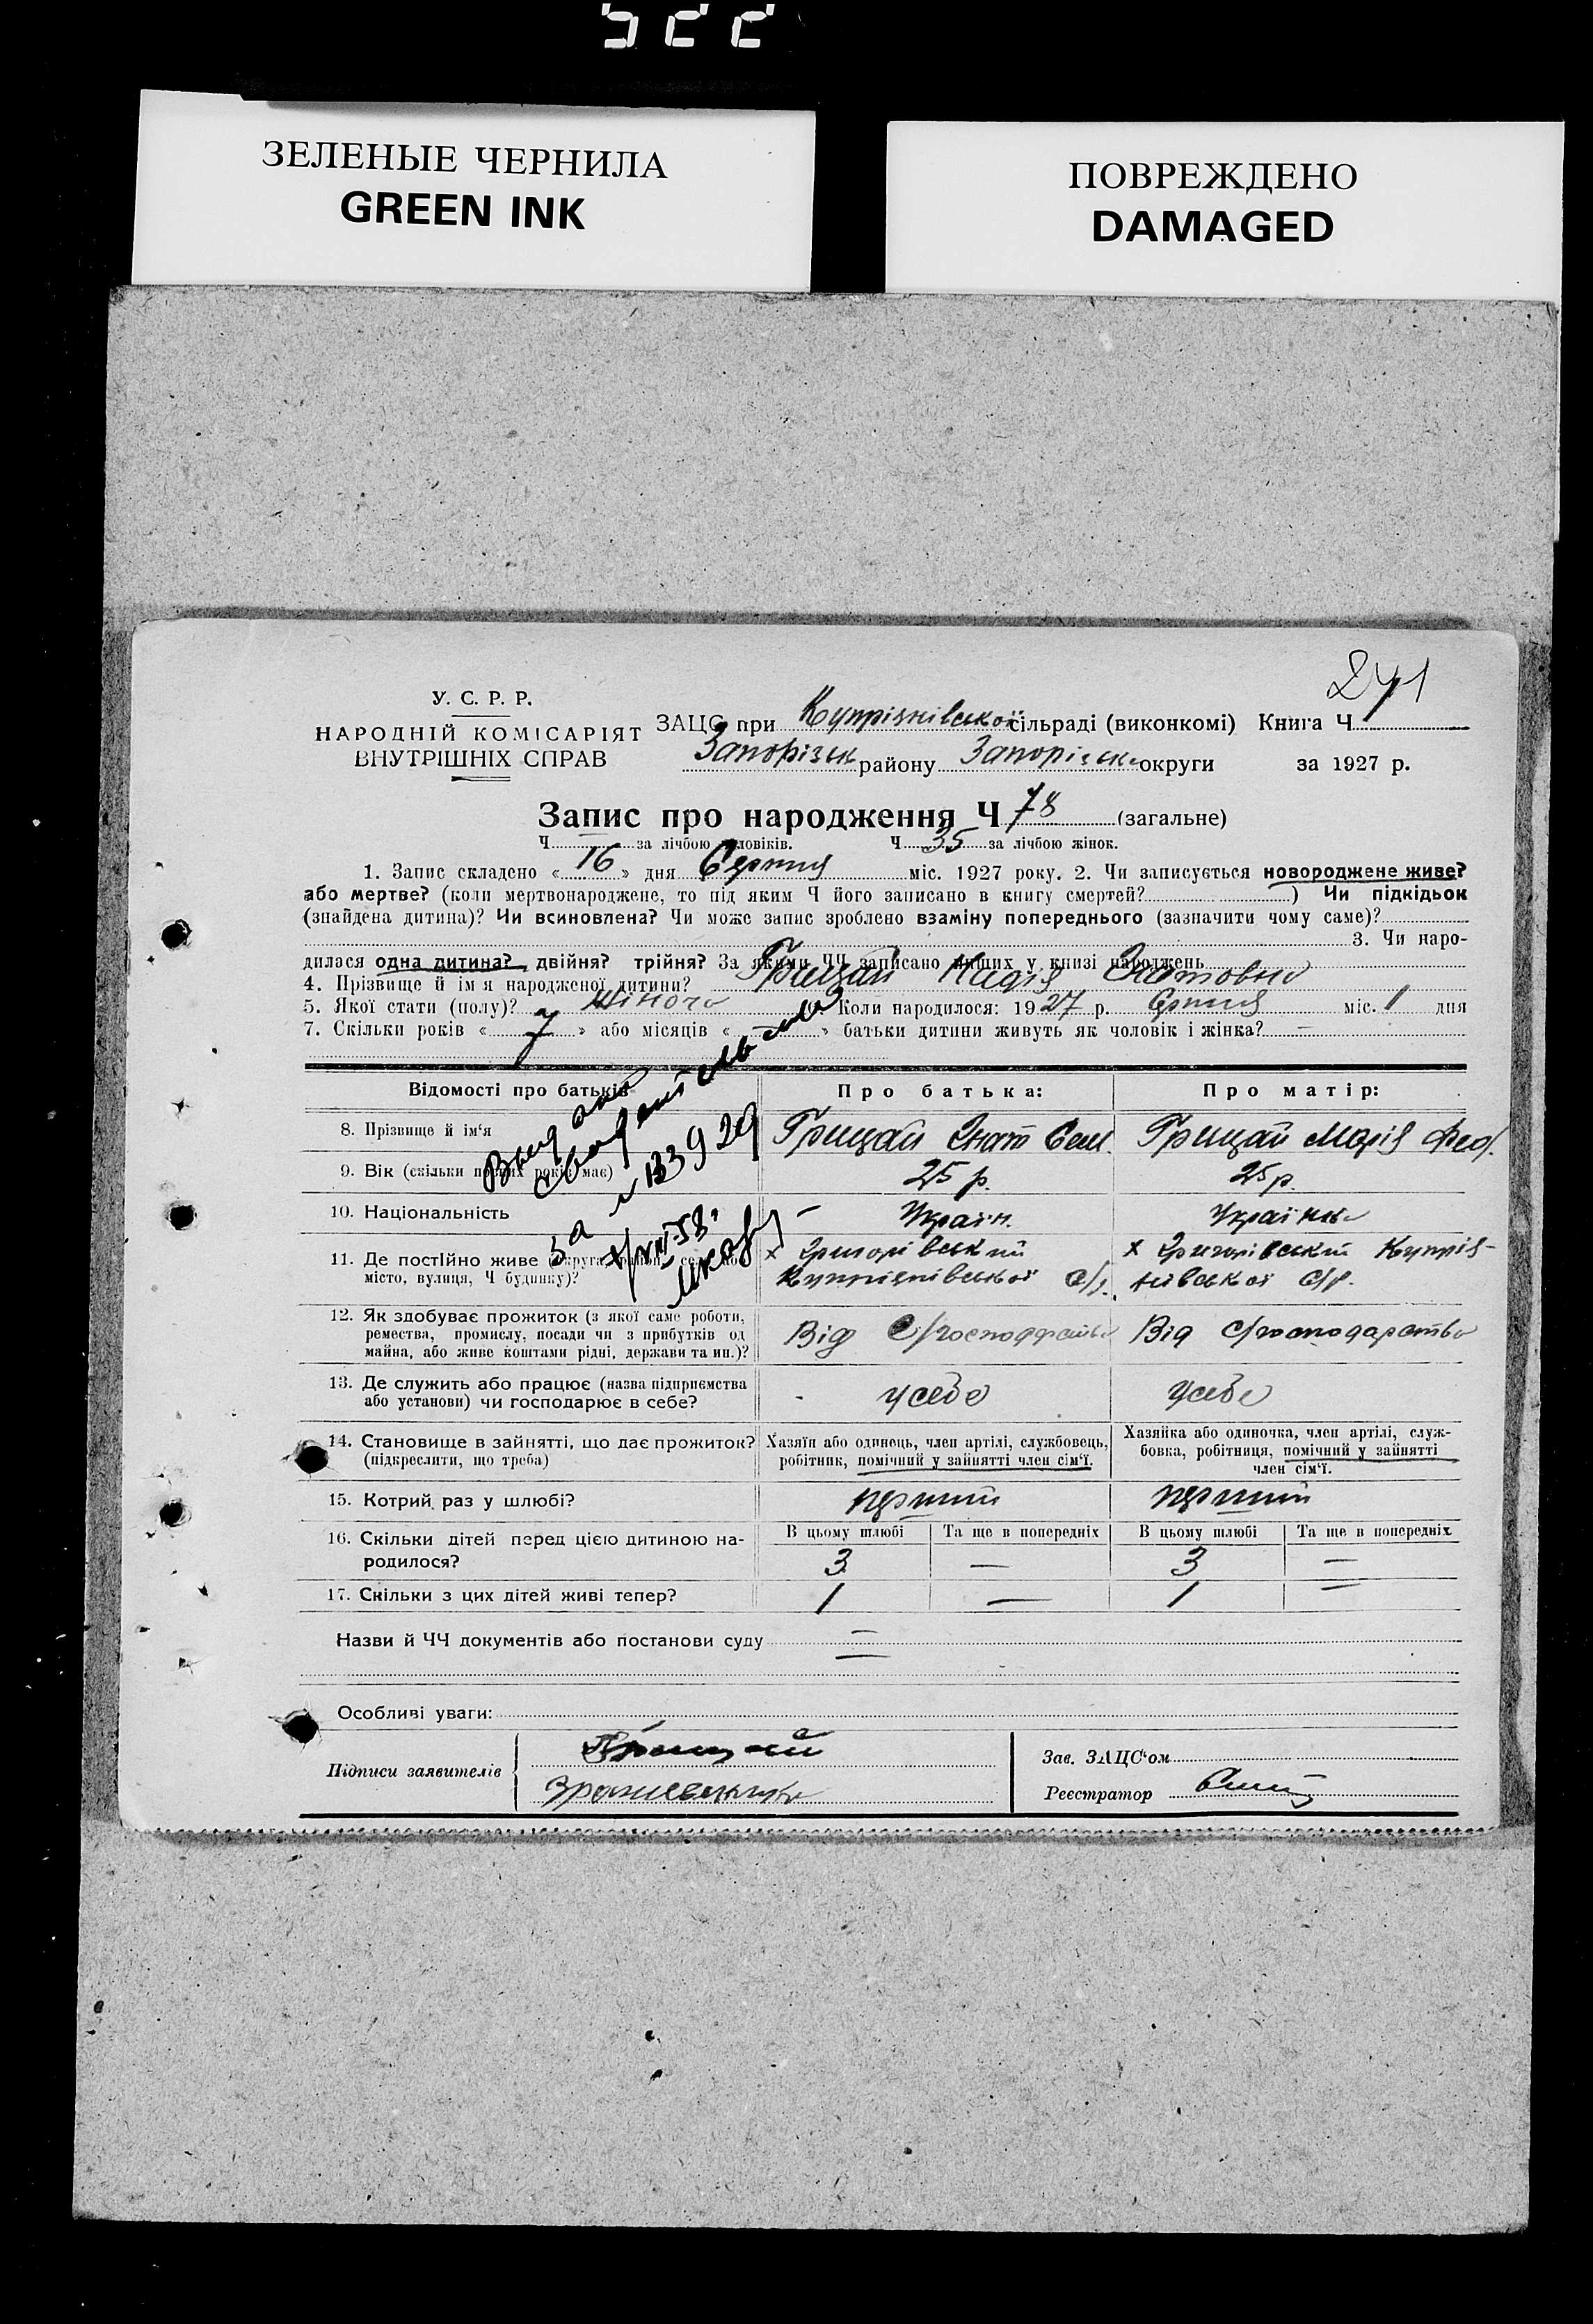 ЗЕЛЕНЫЕ ЧЕРНИЛА
GREEN INK
ПОВРЕЖДЕНО
DAMAGED
241
У. С. Р. Р.
НАРОДНІЙ КОМІСАРІЯТ
ВНУТРІШНІХ СПРАВ
ЗАЦС при Купріянівської сільраді (виконкомі) Книга Ч
Запорізьк району Запорізька округи за 1927 р.
Запис про народження Ч 78 (загальне)
Ч за лічбою чоловіків. Ч 35 за лічбою жінок.
1. Запис складено « 16 » дня Серпня міс. 1927 року. 2. Чи записується новороджене живе?
або мертве? (коли мертвонароджене, то під яким Ч його записано в книгу смертей? ) Чи підкідьок
(знайдена дитина)? Чи всиновлена? Чи може запис зроблено взаміну попереднього (зазначити чому саме)?
3. Чи наро-
дилася одна дитина? двійня? трійня? За якими ЧЧ записано инших у книзі народжень
4. Прізвище й ім'я народженої дитини? Грицай Надія Гнатовна
5. Якої стати (полу)? Жіноча Коли народилося: 1927 р. Серпня міс. 1 дня
7. Скільки років « 7 » або місяців « — » батьки дитини живуть як чоловік і жінка? —
Відомості про батьків
Про батька:
Про матір:
8. Прізвище й ім'я
Грицай Гнат Сем.
Грицай Марія Фед.
9. Вік (скільки повних років має)
25 р.
25 р.
10. Національність
Україн.
Українка
11. Де постійно живе (округа, район, село або
місто, вулиця, Ч будинку)?
х Григорівський
Купріянівської С/р.
х Григорівський Купрія-
нівської С/р.
12. Як здобуває прожиток (з якої саме роботи,
ремества, промислу, посади чи з прибутків од
майна, або живе коштами рідні, держави та ин.)?
Від С/господарства
Від С/господарства
13. Де служить або працює (назва підприємства
або установи) чи господарює в себе?
- у себе
у себе
14. Становище в зайнятті, що дає прожиток?
(підкреслити, що треба)
Хазяїн або одинець, член артілі, службовець,
робітник, помічний у зайнятті член сім'ї.
Хазяйка або одиночка, член артілі, служ-
бовка, робітниця, помічний у зайнятті
член сім'ї.
15. Котрий раз у шлюбі?
перший
перший
16. Скільки дітей перед цією дитиною на-
родилося?
В цьому шлюбі Та ще в попередніх В цьому шлюбі Та ще в попередніх
3 — 3 —
17. Скільки з цих дітей живі тепер?
1 — 1 —
Выдано
свидетельство
за № 133929
Назви й ЧЧ документів або постанови суду
Особливі уваги:
Підписи заявителів
Грицай
Зав. ЗАЦС'ом
Реєстратор